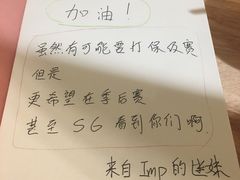 加油！
虽然有可能要打保级赛
但是
更希望在季后赛
甚至 S6 看到你们啊
来自 Imp 的迷妹